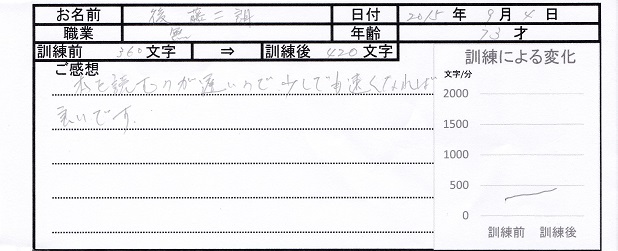 お名前 後藤二朗 日付 2015 年 9 月 4 日
職業 無 年齢 73 才
訓練前 360 文字 ⇒ 訓練後 420 文字
ご感想
本を読むのが遅いので少しでも速くなれば
良いです.
訓練による変化
文字/分
2000
1500
1000
500
0
訓練前 訓練後